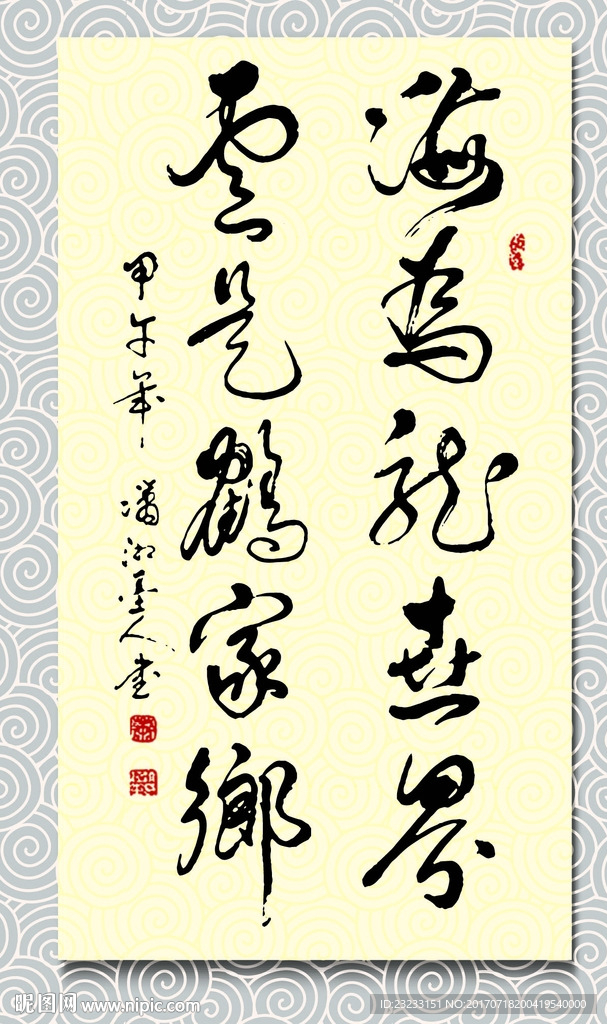 海為龍世界
雲是鶴家鄉
甲午年、瀟湘墨人書
昵图网 www.nipic.com
ID:23233151 NO:20170718200419540000